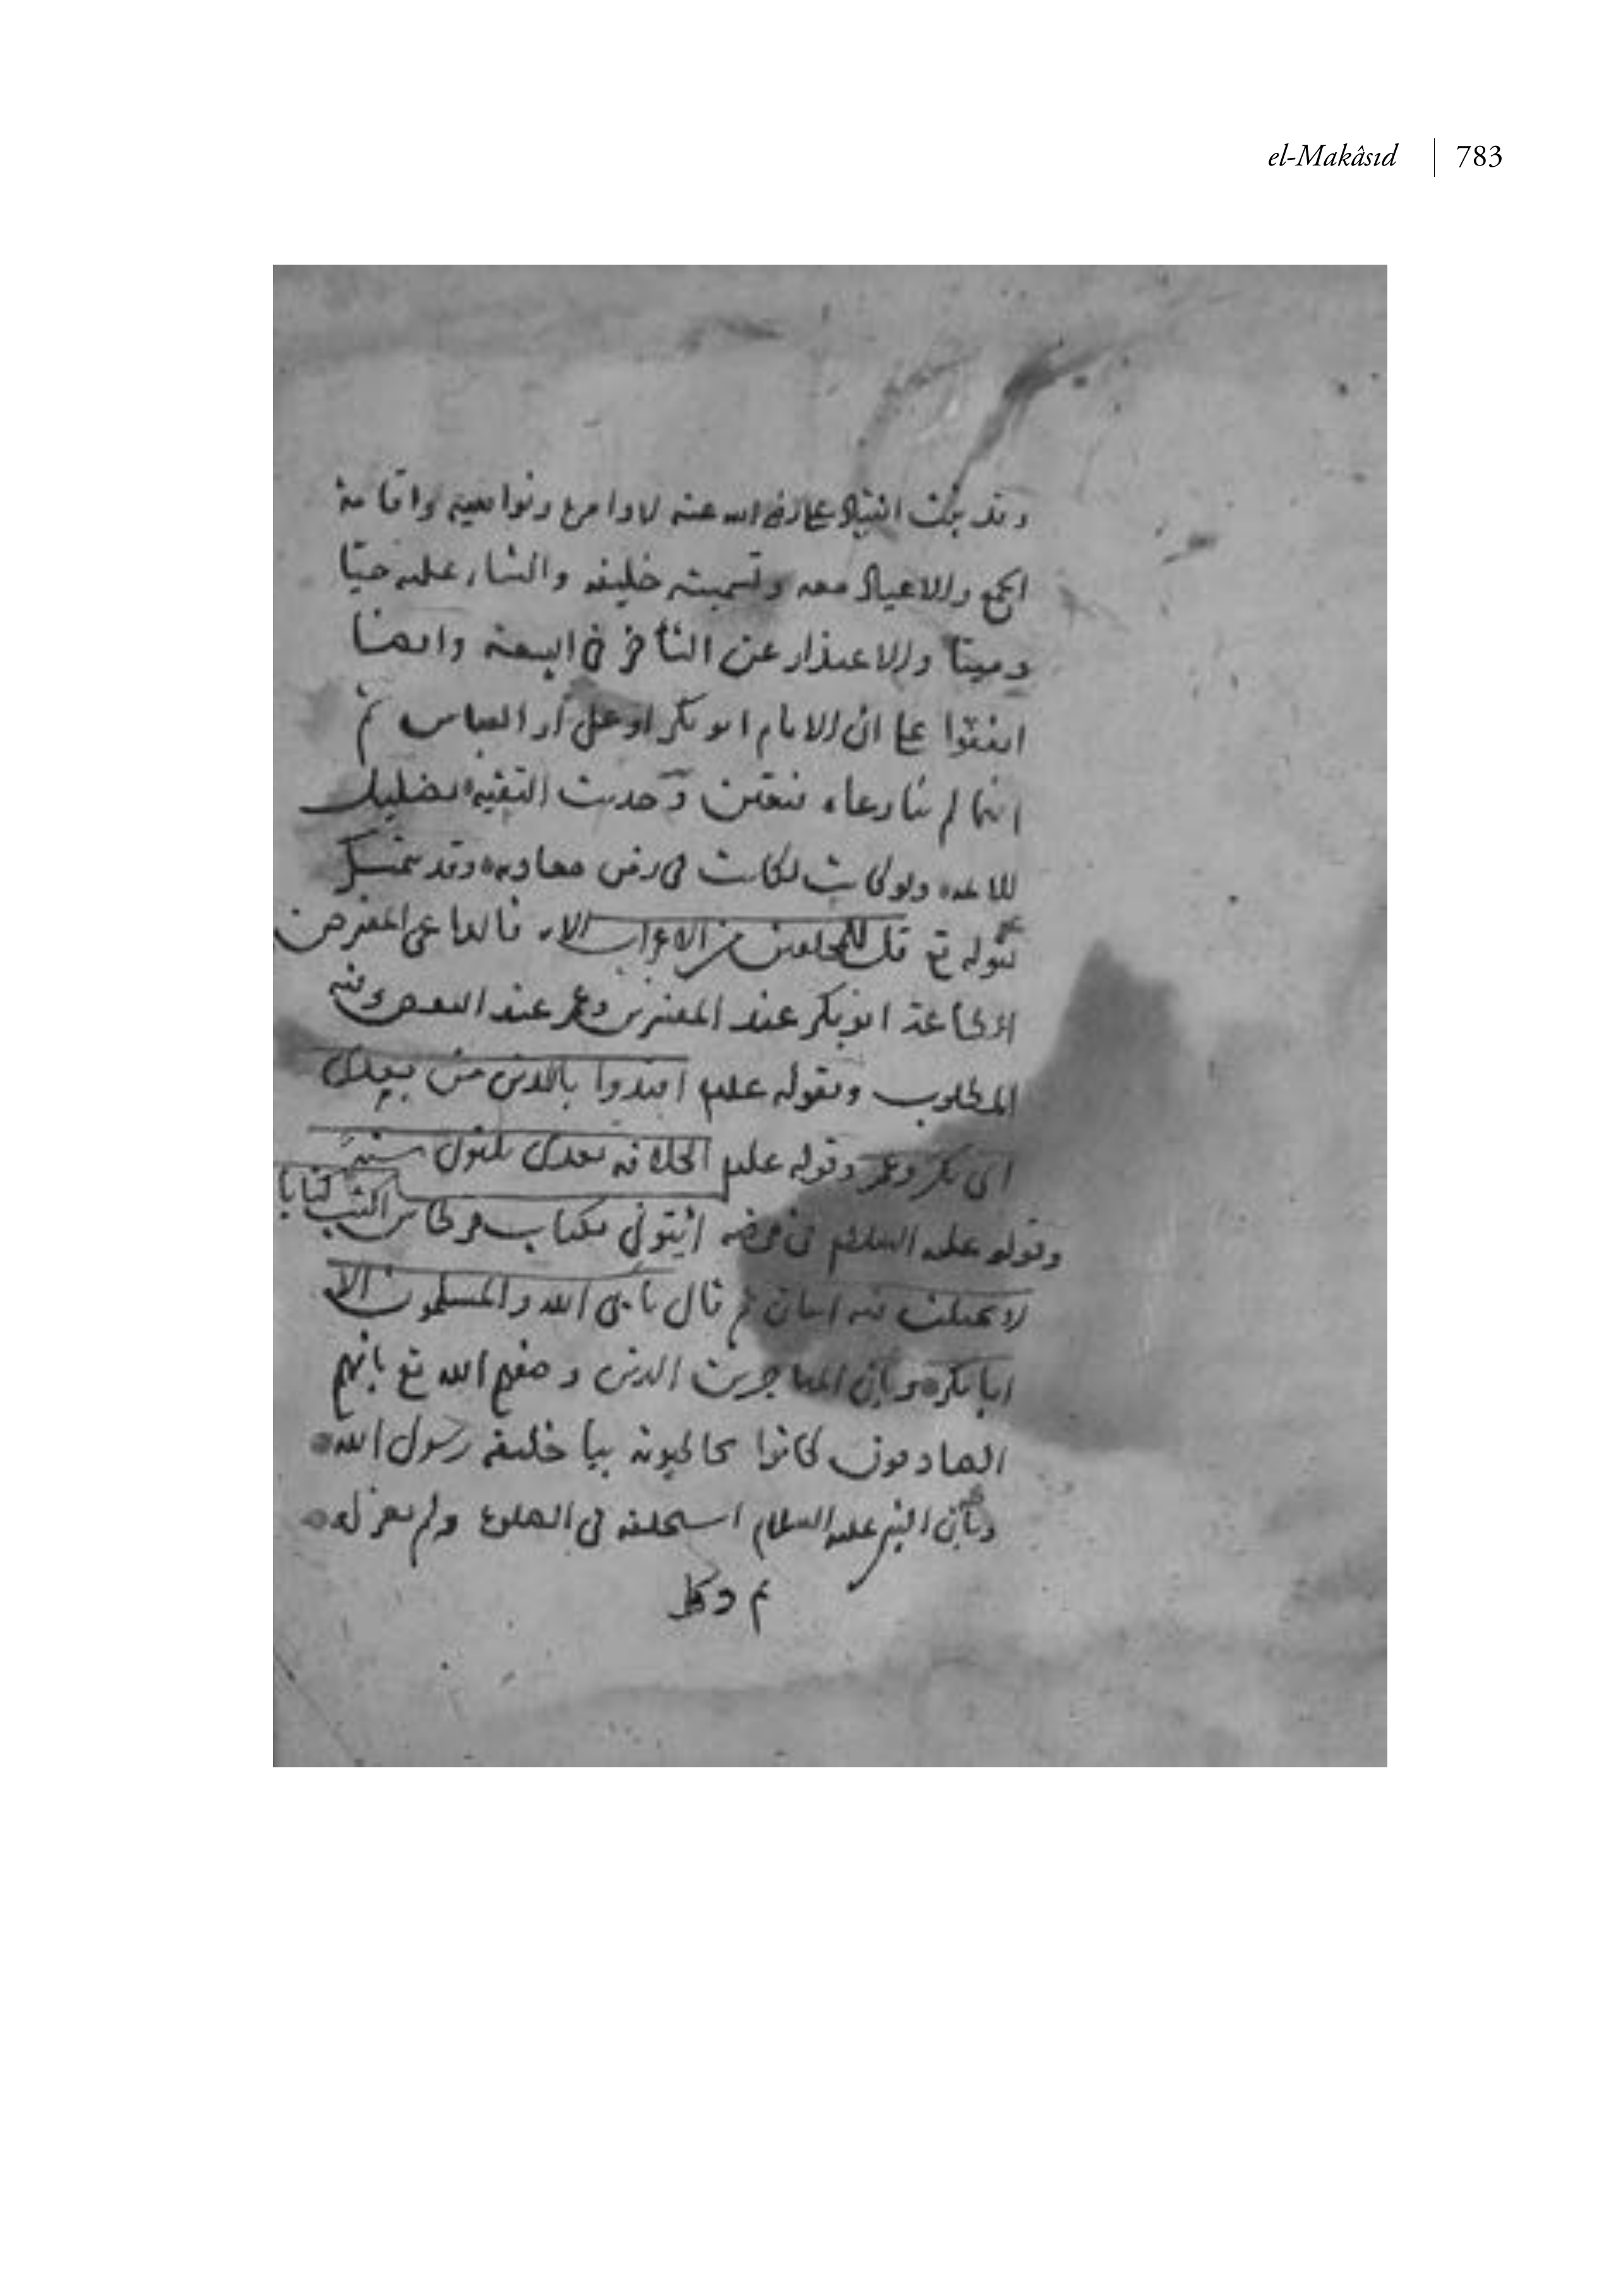 el-Makâsıd 783
وقد ثبت انقياد علي رضي الله عنه لاوامره ونواهيه واقامة
الجمع والاعياد معه وتسميته خليفة والثناء عليه حيّا
وميتا والاعتذار عن التأخر في البيعة وايضا
اتفقوا على ان الامام ابو بكر او علي او العباس ثم
انهما لم ينازعاه فتعين وحديث التقية تضليل
للامة ولو كانت لكانت في زمن معاوية وقد يتمسك
بقوله تع قل للمخلفين من الاعراب الاية فالداعي المفترض
الاطاعة ابو بكر عند المفسرين وعمر عند البعض وفيه
المطلوب وبقوله علم اقتدوا باللذين من بعدى
ابى بكر وعمر وقوله علم الخلافة بعدى ثلثون سنة
وقوله عليه السلام في مرضه ائيتوني بكتاب وقرطاس اكتب كتابا
لا يختلف فيه اثنان ثم قال يأبى الله والمسلمون الا
ابا بكر وبان المهاجرين الذين وصفهم الله تع بانهم
الصادقون كانوا يخاطبونه بيا خليفة رسول الله
وبأن النبي عليه السلام استخلفه في الصلوة ولم يعزله
م وكل